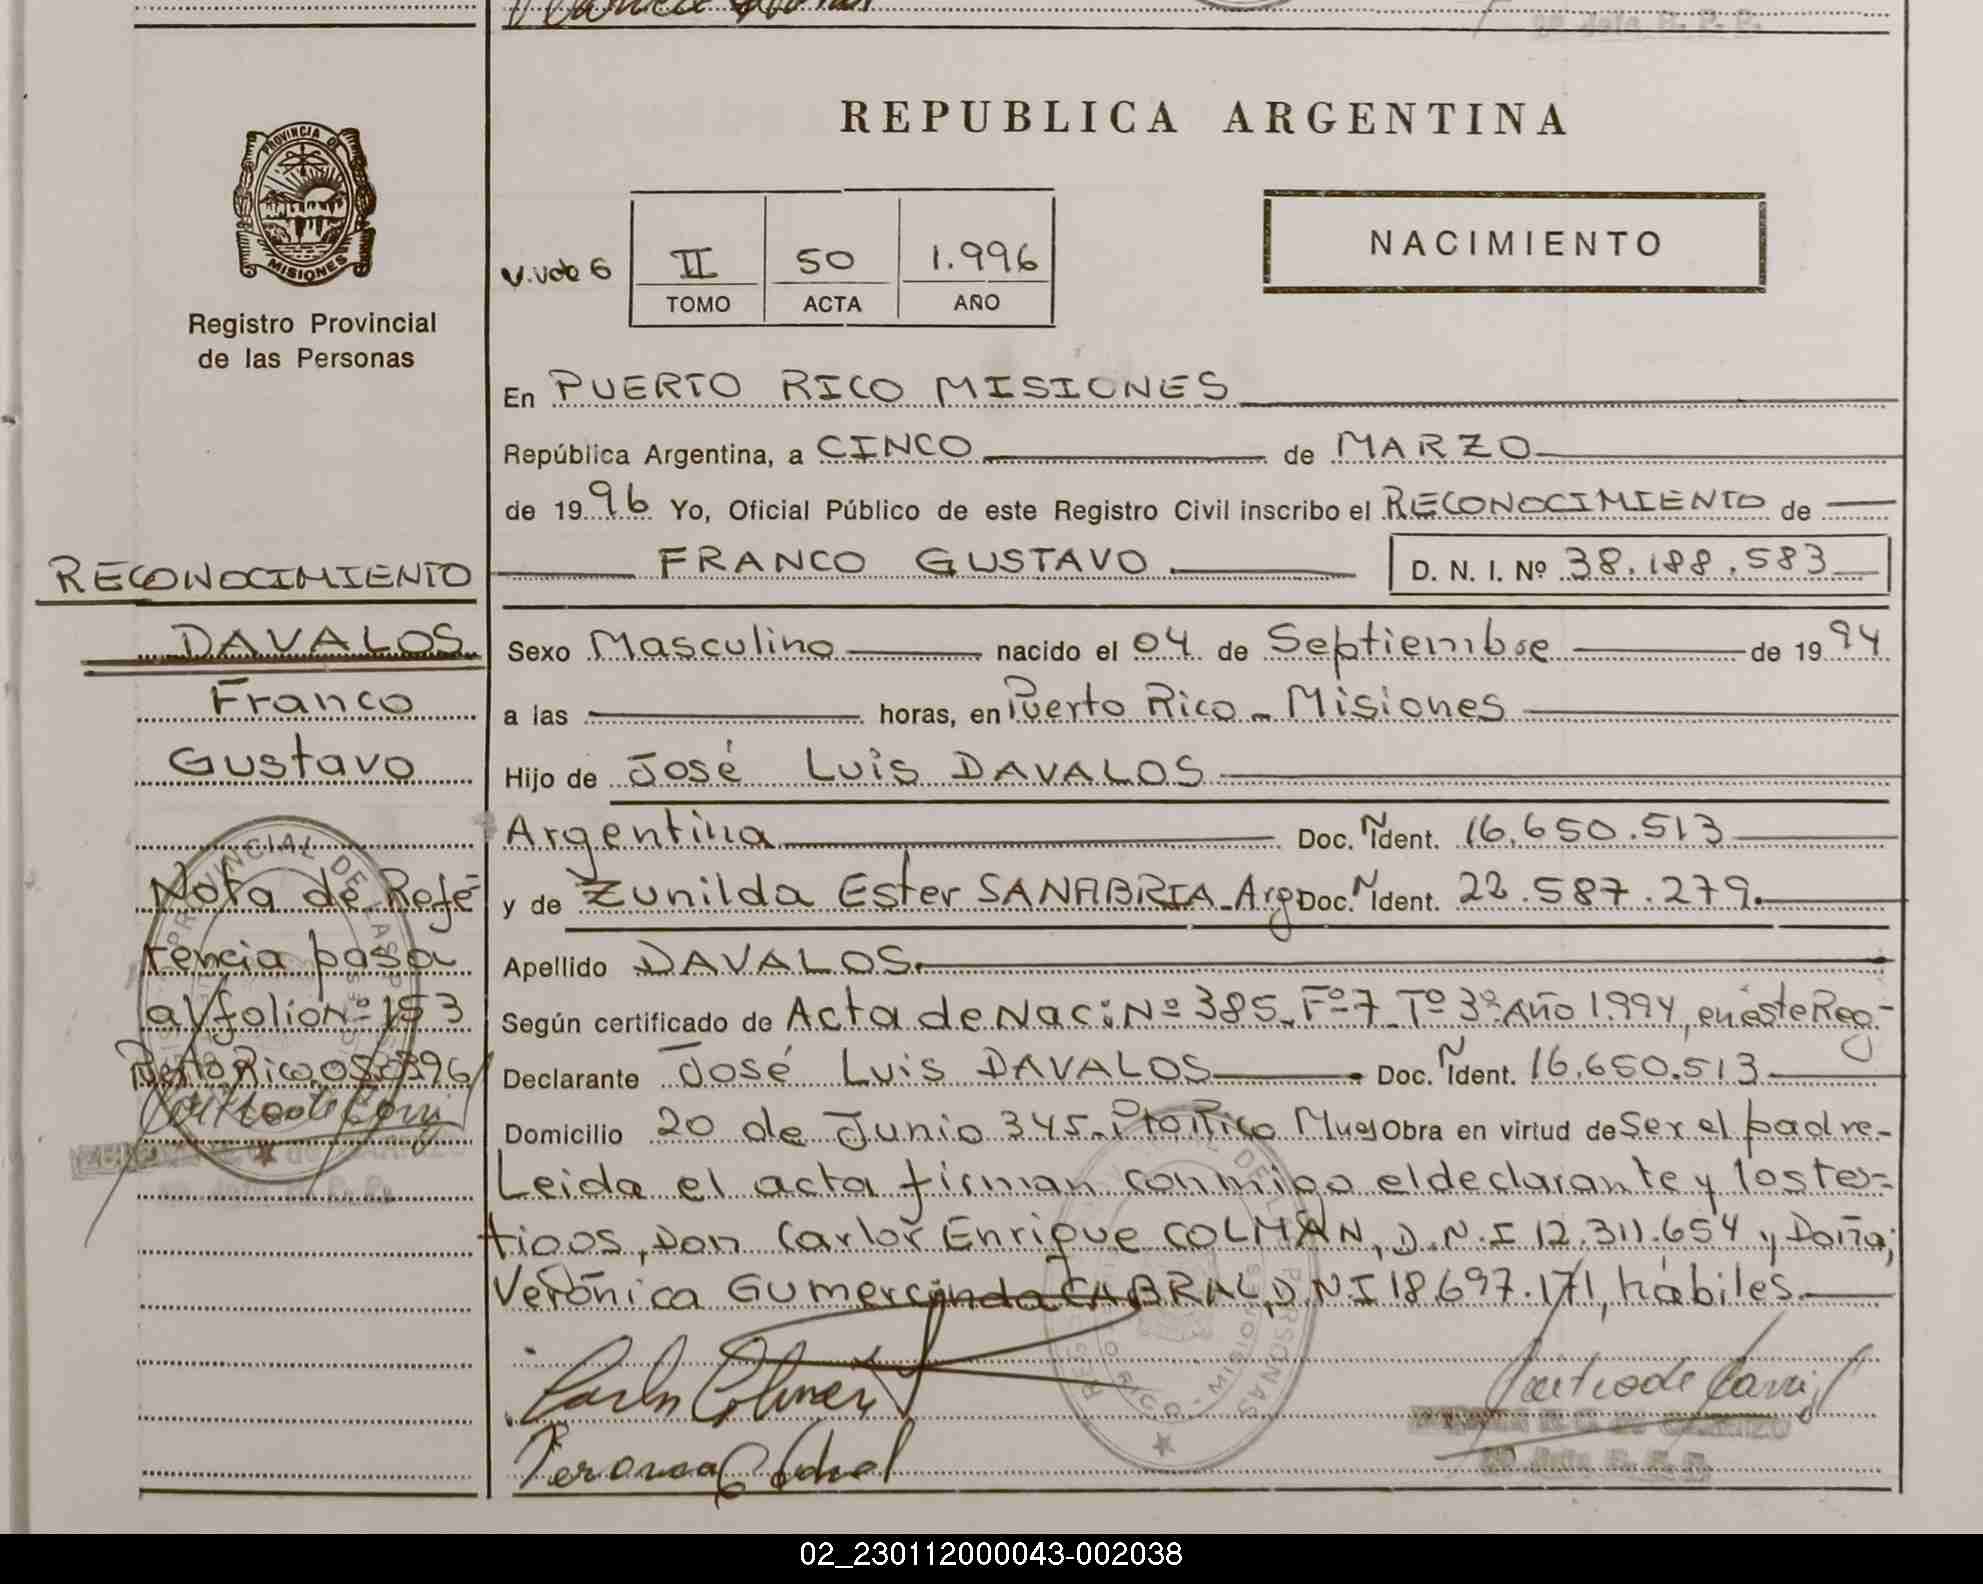 REPUBLICA ARGENTINA
PROVINCIA DE
MISIONES
Registro Provincial
de las Personas
NACIMIENTO
II 50 1.996
TOMO ACTA AÑO
En PUERTO RICO MISIONES
República Argentina, a CINCO de MARZO
de 1996 Yo, Oficial Público de este Registro Civil inscribo el RECONOCIMIENTO de
FRANCO GUSTAVO D. N. I. Nº 38.188.583
Sexo Masculino nacido el 04 de Septiembre de 1994
a las horas, en Puerto Rico - Misiones
Hijo de José Luis DAVALOS
Argentina Doc. N Ident. 16.650.513
y de Zunilda Ester SANABRIA - Arg Doc. N Ident. 22.587.279.
Apellido DAVALOS.
Según certificado de Acta de Nac: Nº 385 - Fº 7 - Tº 3º Año 1.994, en éste Reg-
Declarante José Luis DAVALOS Doc. N Ident. 16.650.513
Domicilio 20 de Junio 345 - Pto Rico Mnes Obra en virtud de Ser el padre -
Leida el acta firman conmigo el declarante y los tes=
tigos, Don Carlos Enrique COLMÁN, D.N.I 12.311.654 y Doña;
Verónica Gumercinda CABRAL, D.N.I 18.697.171, hábiles.
RECONOCIMIENTO
DAVALOS
Franco
Gustavo
Nota de Refe-
rencia pasa
al folio nº 153
Puerto Rico 050396
02_230112000043-002038